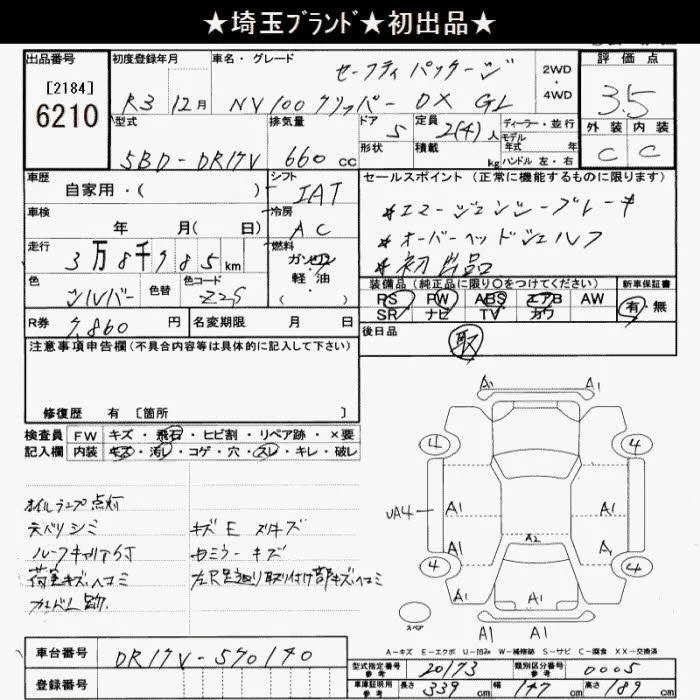 ★埼玉ブランド★初出品★
出品番号
[2184]
6210
初度登録年月
R3 12月
車名・グレード
セーフティパッケージ
NV100クリッパー DX GL
2WD
・
4WD
評価点
3.5
外装 内装
C C
型式
5BD-DR17V
排気量
660 cc
ドア
5
形状
定員
2(4)人
積載
kg
ディーラー・並行
モデル
年式 年
ハンドル 左・右
車歴
自家用・( )
シフト
IAT
セールスポイント (正常に機能するものに限ります)
*エマージェンシーブレーキ
*オーバーヘッドシェルフ
*初出品
車検
年 月( 日)
冷房
AC
走行
3万8千985km
燃料
ガソリン
軽・油
( )
色
シルバー
色替
色コード
Z2S
装備品 (純正品に限り○をつけてください)
PS PW ABS エアB AW
SR ナビ TV カワ
新車保証書
有・無
R券
7,860 円
名変期限 月 日
後日品
取
注意事項申告欄(不具合内容等は具体的に記入して下さい)
修復歴 有 [箇所 ]
検査員
記入欄
FW キズ・飛石・ヒビ割・リペア跡・×要
内装 キズ・汚レ・コゲ・穴・スレ・キレ・破レ
オイルランプ点灯
天バリシミ
ルーフキャリア付
荷室キズ、ヘコミ
キズE スリキズ
左ミラーキズ
A1 A1
4 4
A1 A1
UA4
A2
A1 A1
4 4
A1
A1 A1
スペア
A-キズ E-エクボ U-凹み W-補修跡 S-サビ C-腐食 XX-交換済
車台番号
DR17V-570140
登録番号
型式指定番号
参考
20173
類別区分番号
参考
0005
車庫証明用
参考
長さ 339 cm 幅 147 cm 高さ 189 cm